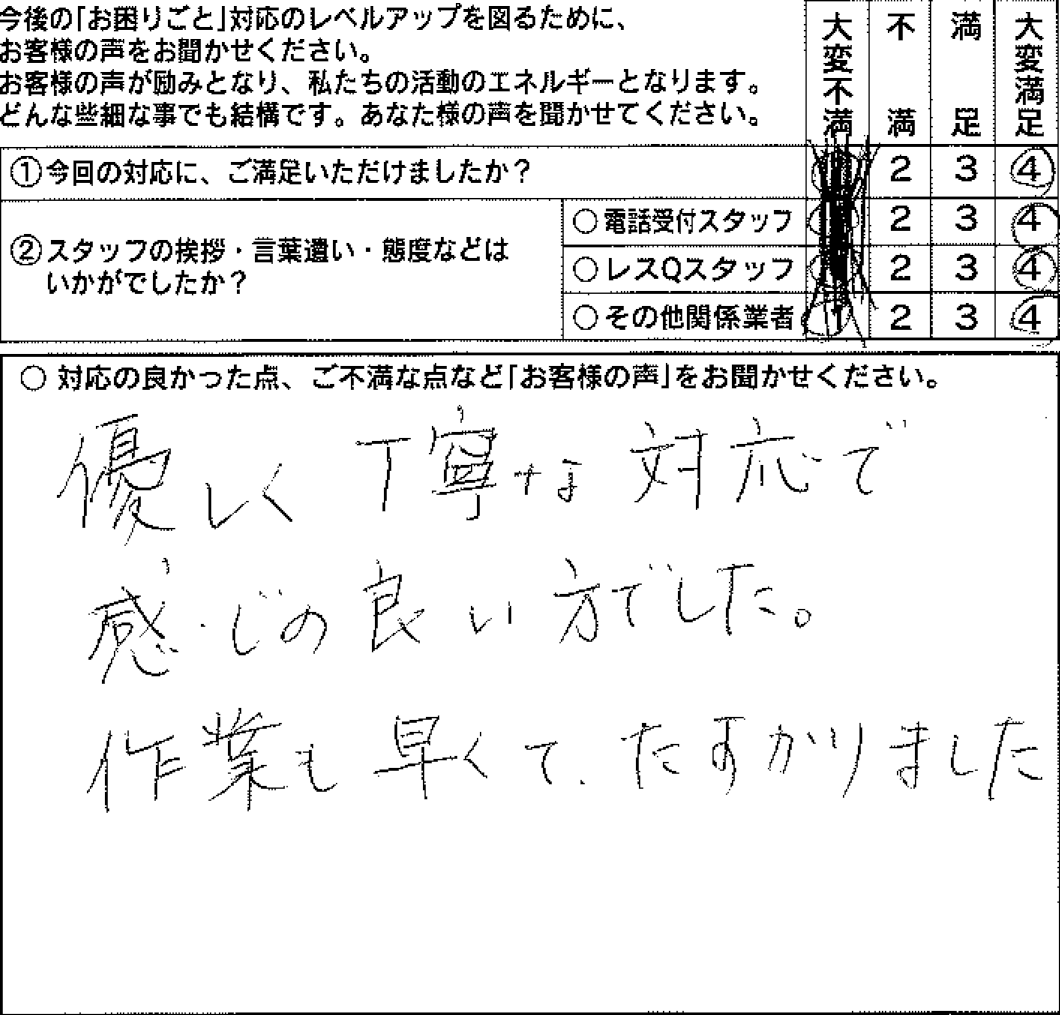 今後の「お困りごと」対応のレベルアップを図るために、
お客様の声をお聞かせください。
お客様の声が励みとなり、私たちの活動のエネルギーとなります。
どんな些細な事でも結構です。あなた様の声を聞かせてください。
大変不満 不満 満足 大変満足
①今回の対応に、ご満足いただけましたか? 2 3 4
②スタッフの挨拶・言葉遣い・態度などは
いかがでしたか?
○電話受付スタッフ 2 3 4
○レスQスタッフ 2 3 4
○その他関係業者 1 2 3 4
○ 対応の良かった点、ご不満な点など「お客様の声」をお聞かせください。
優しく丁寧な対応で
感じの良い方でした。
作業も早くて、たすかりました